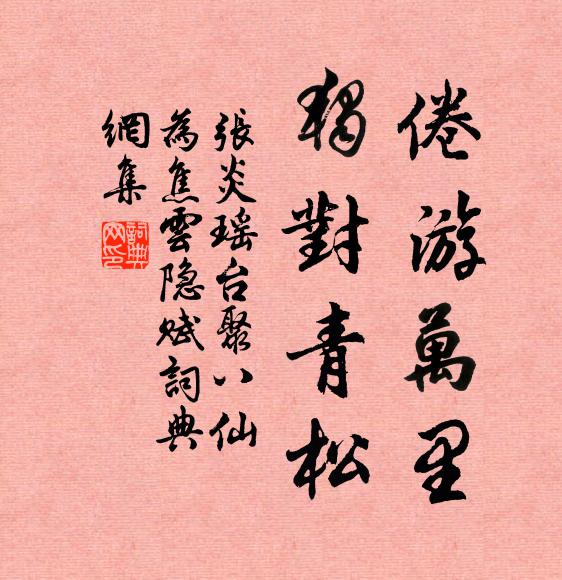 倦游萬里
獨對青松
張炎瑶台聚八仙
為焦雲隐赋詞典
網集
詞典
网印